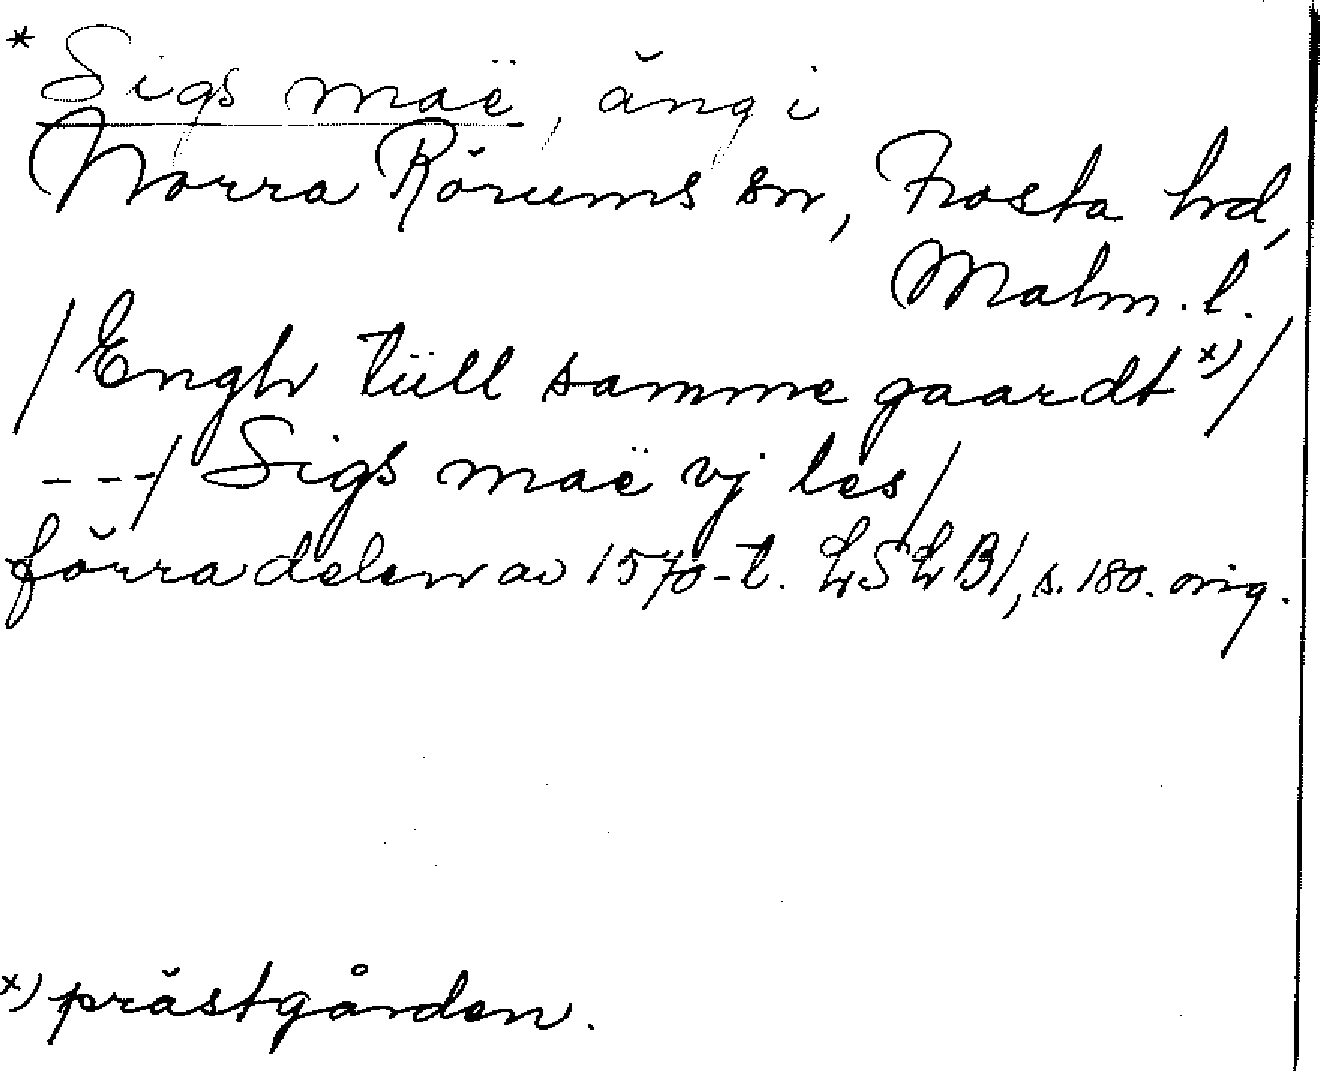 * Sigs maë, äng i
Norra Rörums sn, Frosta hd,
Malm. l.
/Engh tüll samme gaardt x)/
---/ Sigs maë vj les/
förra delen av 1570-t. LSLB1, s. 180. orig.
x) prästgården.